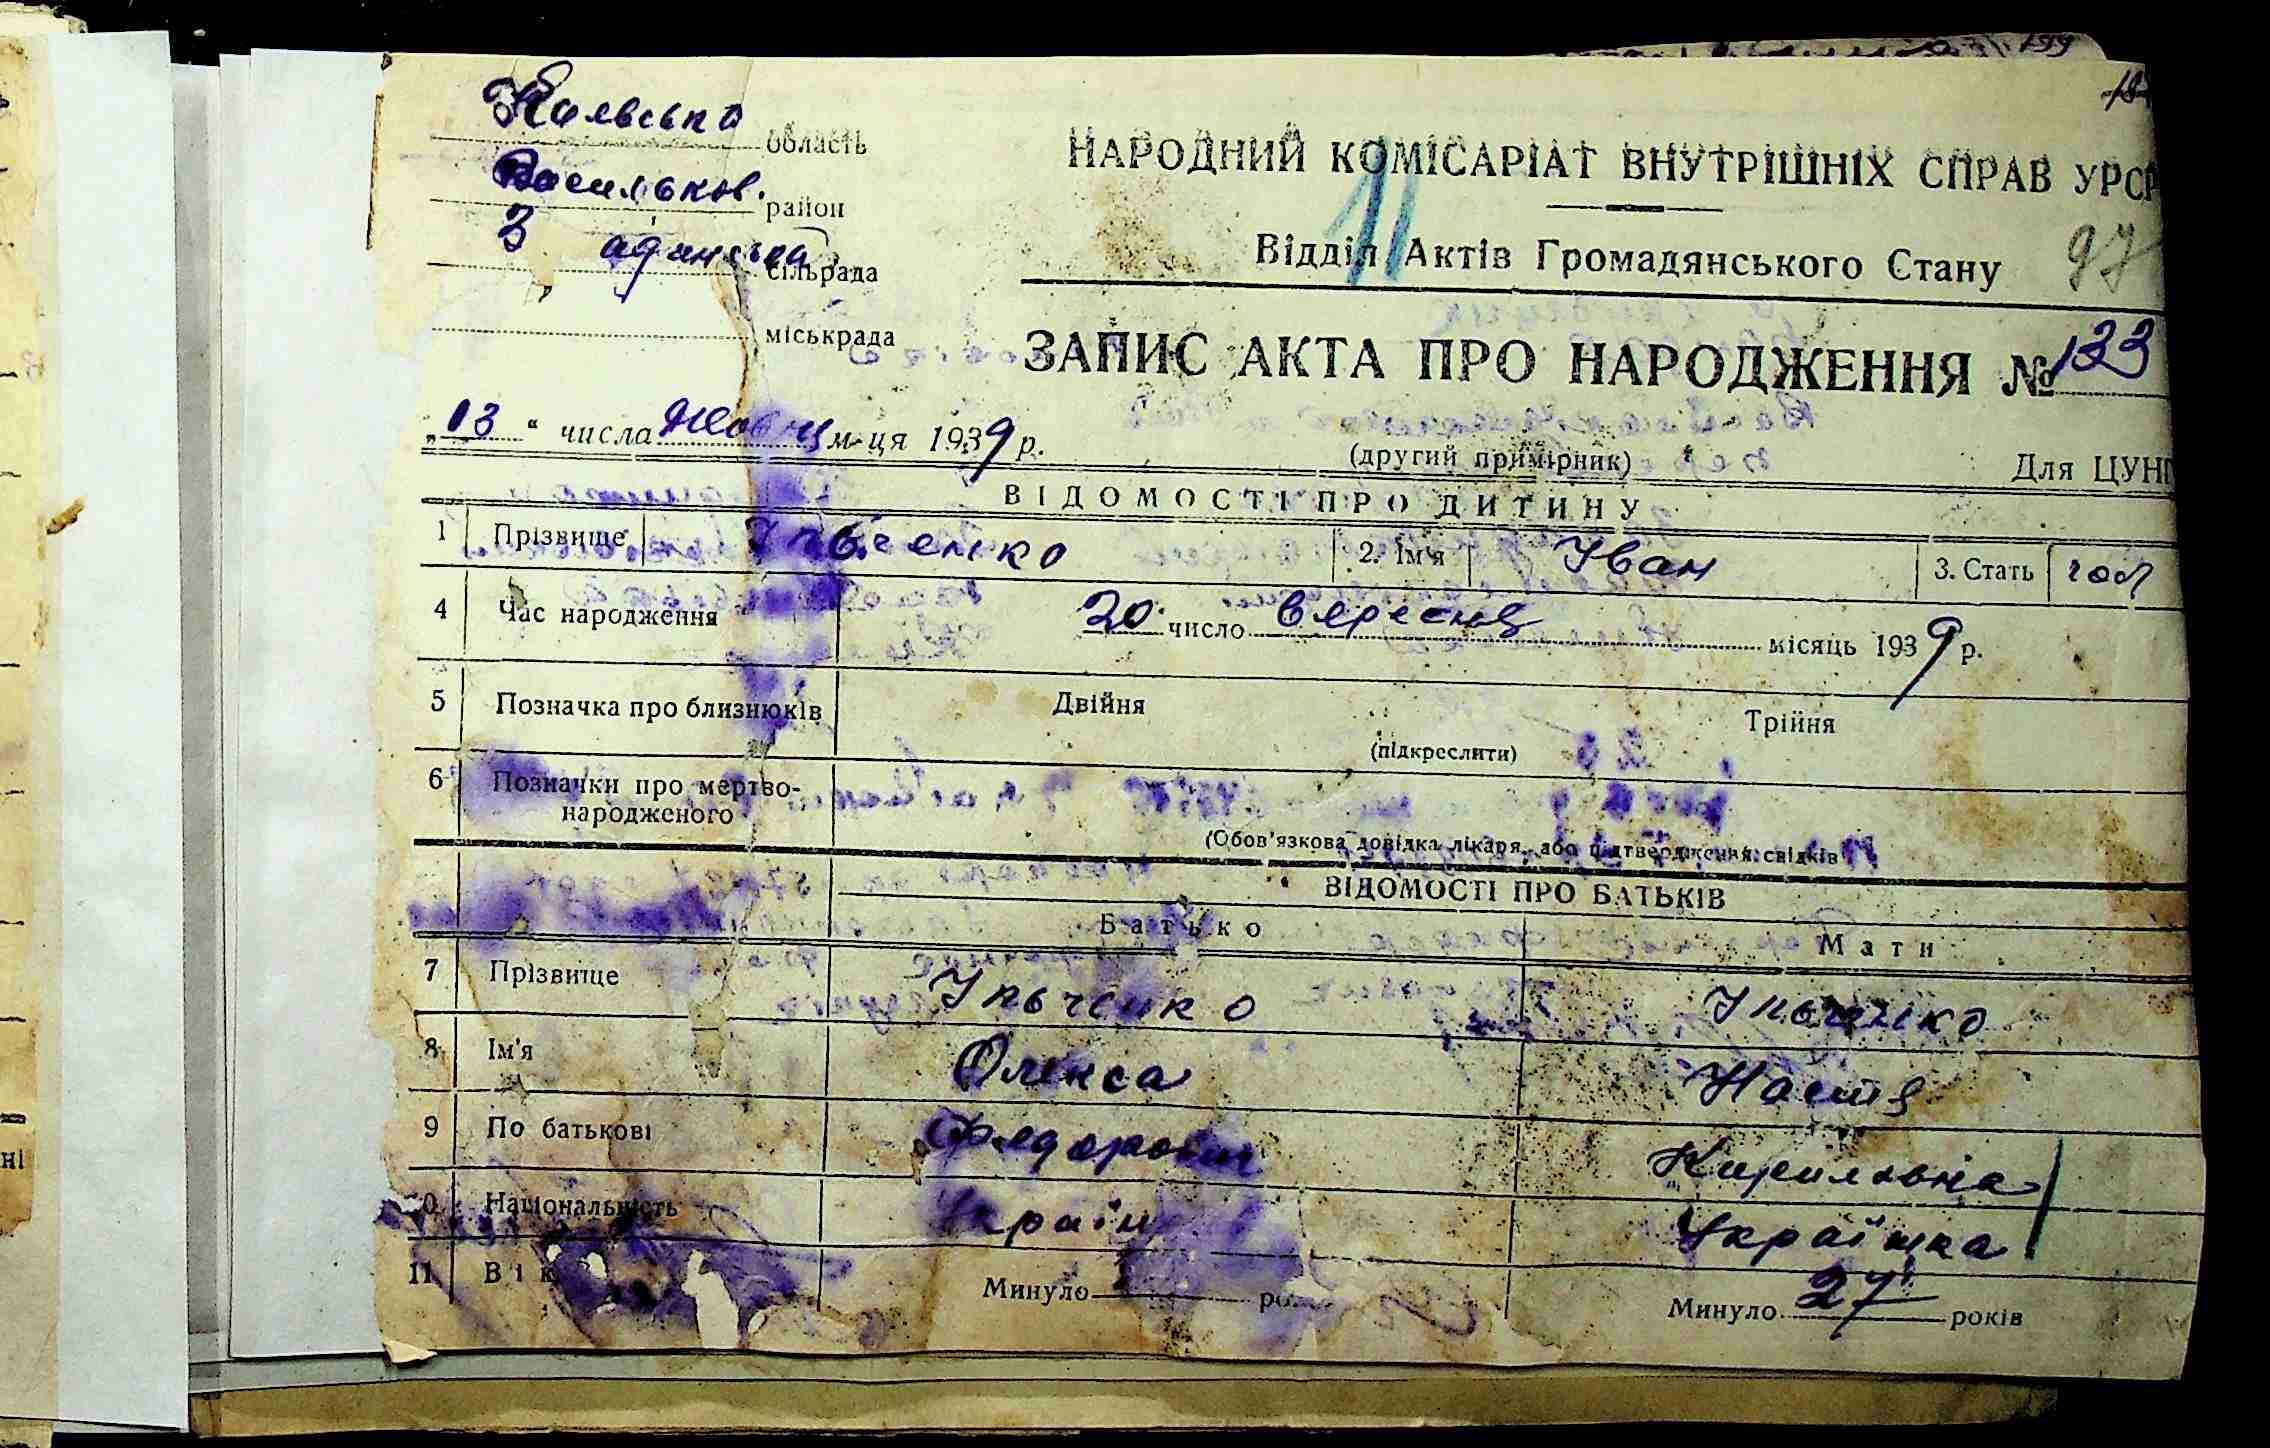 Київсько область
Васильков. район
сільрада
міськрада
НАРОДНИЙ КОМІСАРІАТ ВНУТРІШНІХ СПРАВ УРСР
11
Відділ Актів Громадянського Стану
97
ЗАПИС АКТА ПРО НАРОДЖЕННЯ № 133
„13“ числа Жовтня м-ця 1939 р.
(другий примірник)
Для ЦУНГ
ВІДОМОСТІ ПРО ДИТИНУ
1 Прізвище Ільченко 2. Ім'я Іван 3. Стать чол
4 Час народження 20 число вересня місяць 1939 р.
5 Позначка про близнюків Двійня Трійня
(підкреслити)
6 Позначки про мертво-
народженого
(Обов'язкова довідка лікаря, або підтвердження свідків)
ВІДОМОСТІ ПРО БАТЬКІВ
Батько Мати
7 Прізвище Ільченко Ільченко
8 Ім'я Олекса Настя
9 По батькові Федорович Кирилівна
0 Національність Україн Українка
11 Вік Минуло ро Минуло 27 років